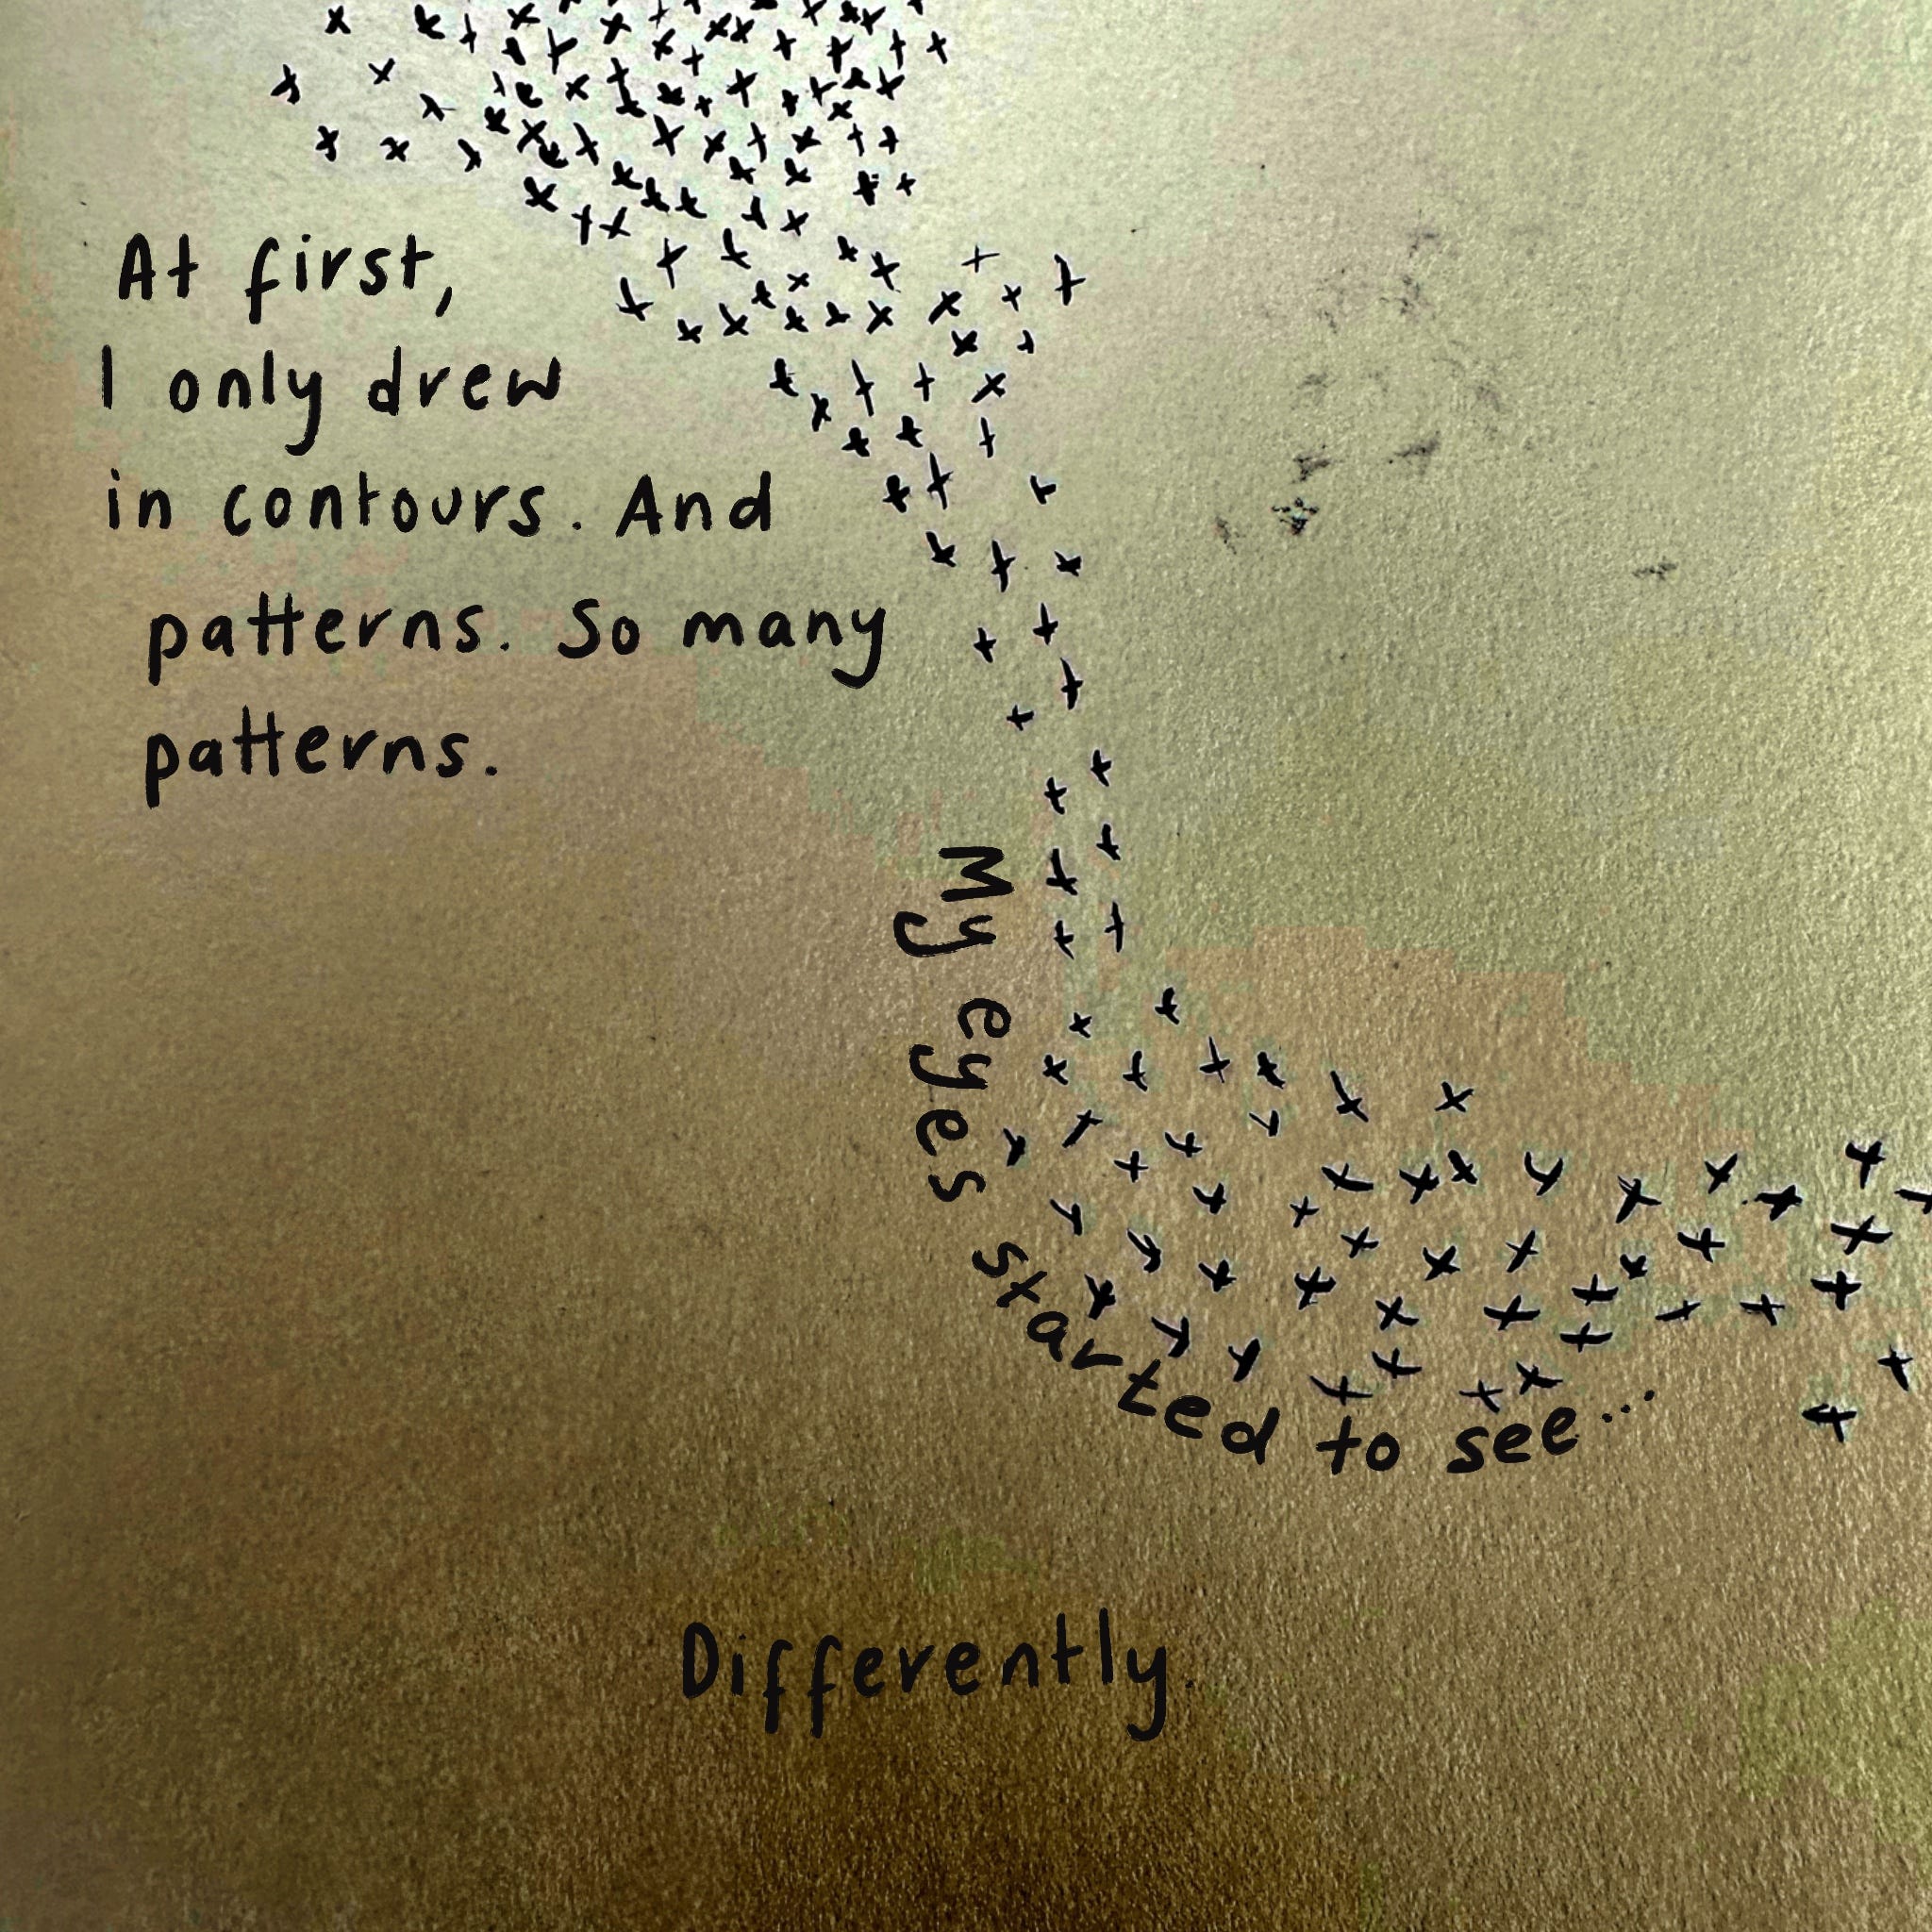 At first,
I only drew
in contours. And
patterns. So many
patterns.
My eyes started to see...
Differently.